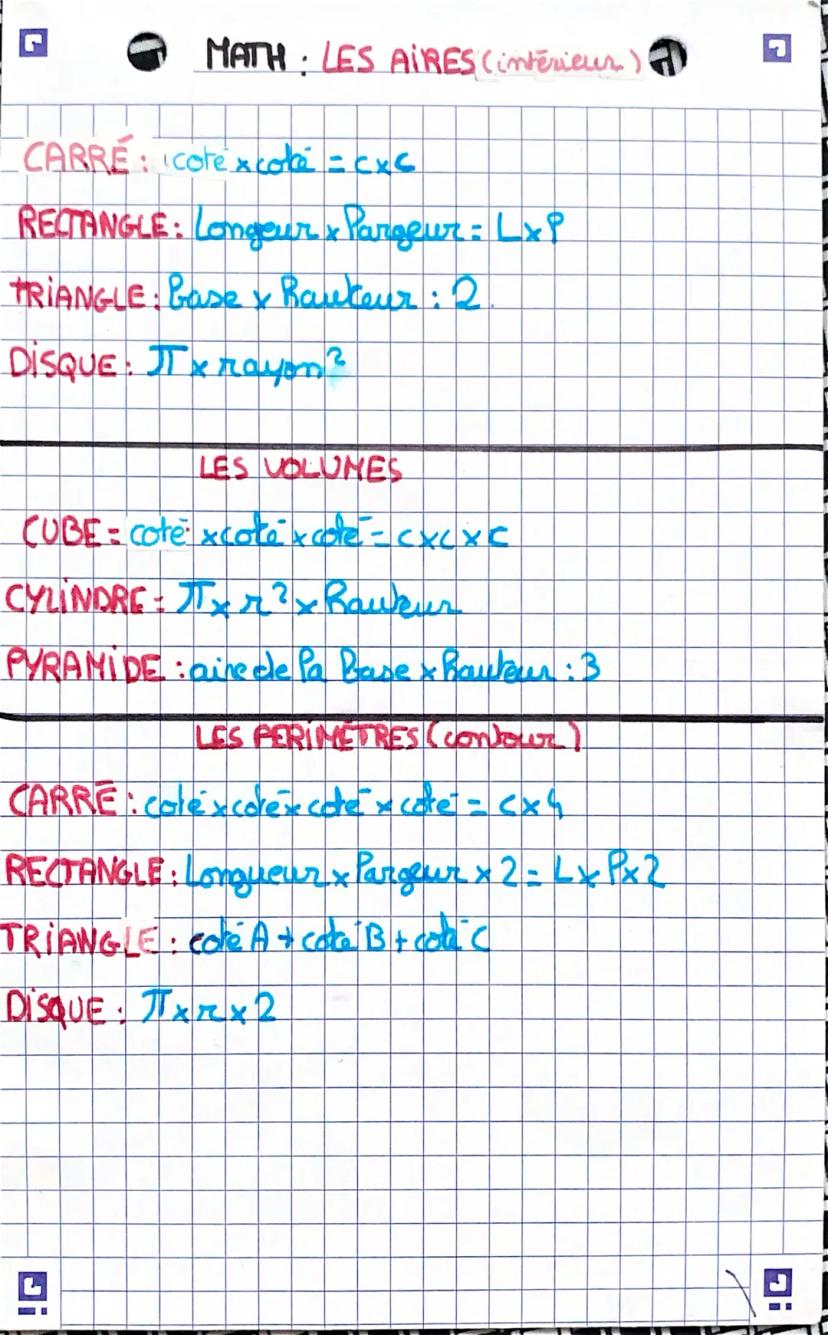 MATH : LES AIRES (intérieur)
CARRÉ : coté x coté = c x c
RECTANGLE : Longeur x largeur = L x l
TRIANGLE : base x hauteur : 2
DISQUE : π x rayon²
LES VOLUMES
CUBE = coté x coté x coté = c x c x c
CYLINDRE = π x r² x hauteur
PYRAMIDE : aire de la base x hauteur : 3
LES PERIMÈTRES (contour)
CARRÉ : coté x coté x coté x coté = c x 4
RECTANGLE : Longueur x largeur x 2 = L x l x 2
TRIANGLE : coté A + coté B + coté C
DISQUE : π x r x 2